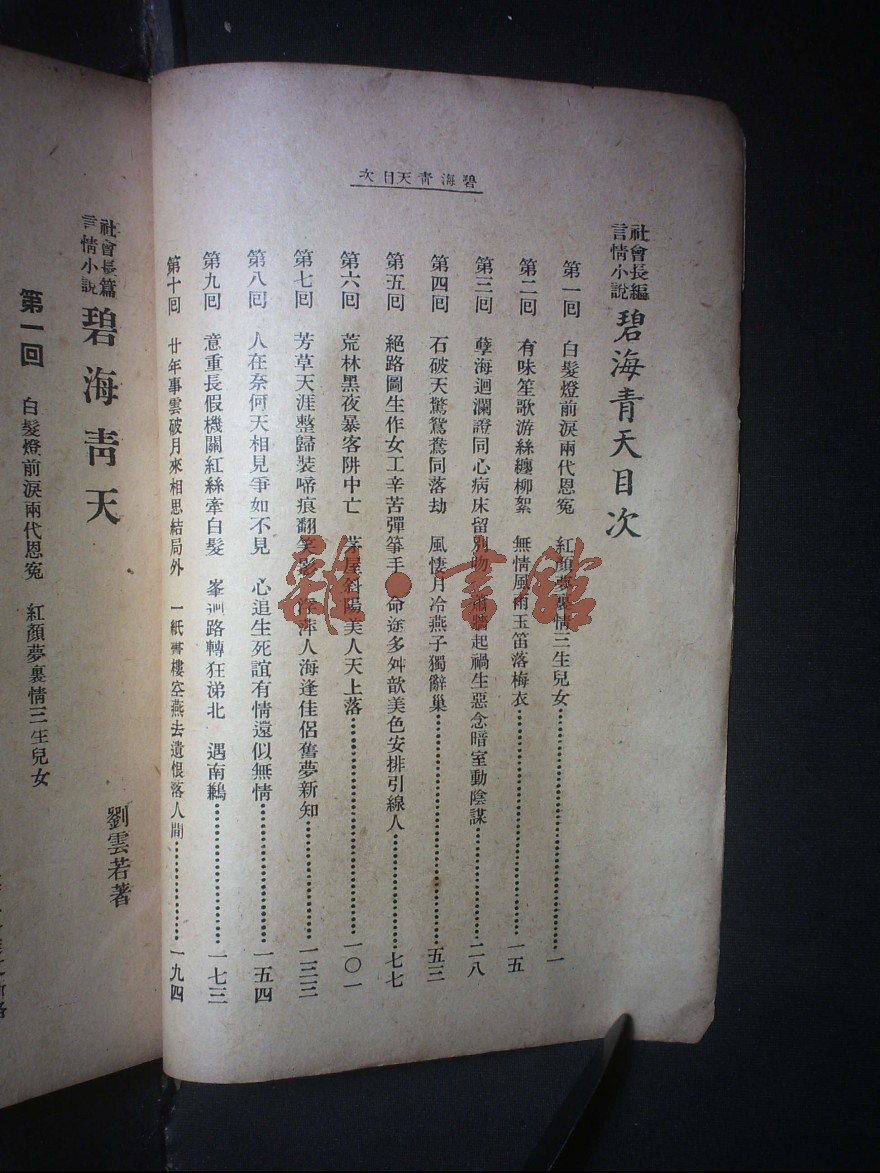 碧海青天目次
社會長編
言情小說
碧海青天目次
第一回　白髮燈前淚兩代恩寃　紅顏夢裏情三生兒女…………一
第二回　有味笙歌游絲纏柳絮　無情風雨玉笛落梅衣…………一五
第三回　孽海迴瀾證同心病床留別吻　蕭牆起禍生惡念暗室動陰謀…………二八
第四回　石破天驚鴛鴦同落劫　風悽月冷燕子獨辭巢…………五三
第五回　絕路圖生作女工辛苦彈箏手　命途多舛歆美色安排引線人…………七七
第六回　荒林黑夜暴客阱中亡　茅屋斜陽美人天上落…………一〇一
第七回　芳草天涯整歸裝啼痕翻笑影　浮萍人海逢佳侶舊夢新知…………一三三
第八回　人在奈何天相見爭如不見　心追生死誼有情還似無情…………一五四
第九回　意重長假機關紅絲牽白髮　峯迴路轉狂涕北　遇南鶼…………一七三
第十回　廿年事雲破月來相思結局外　一紙書樓空燕去遺恨落人間…………一九四
社會長篇
言情小說
碧海青天
劉雲若著
第一回　白髮燈前淚兩代恩寃　紅顏夢裏情三生兒女
雜·書館